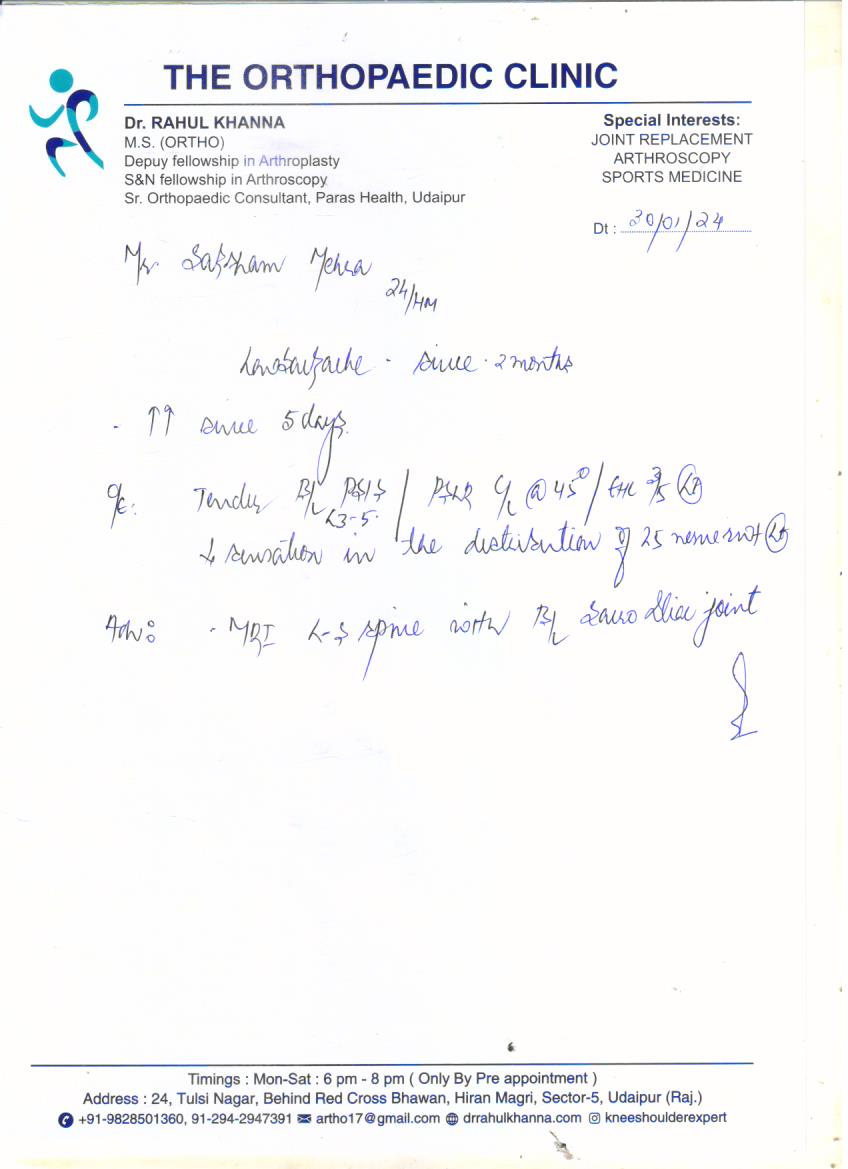 THE ORTHOPAEDIC CLINIC
Dr. RAHUL KHANNA
M.S. (ORTHO)
Depuy fellowship in Arthroplasty
S&N fellowship in Arthroscopy
Sr. Orthopaedic Consultant, Paras Health, Udaipur
Special Interests:
JOINT REPLACEMENT
ARTHROSCOPY
SPORTS MEDICINE
Dt : 30/01/24
Mr Saksham Mehra
24/
since 2 months
- ↑↑ since 5 days
O/E: Tender B/L PSIS / @ 45° / EHL 3/5 Lt
L3-5
↓ sensation in the distribution of L5 nerve root Lt
Adv: - MRI L-S spine with B/L Sacro Iliac joint
Timings : Mon-Sat : 6 pm - 8 pm ( Only By Pre appointment )
Address : 24, Tulsi Nagar, Behind Red Cross Bhawan, Hiran Magri, Sector-5, Udaipur (Raj.)
+91-9828501360, 91-294-2947391 artho17@gmail.com drrahulkhanna.com kneeshoulderexpert